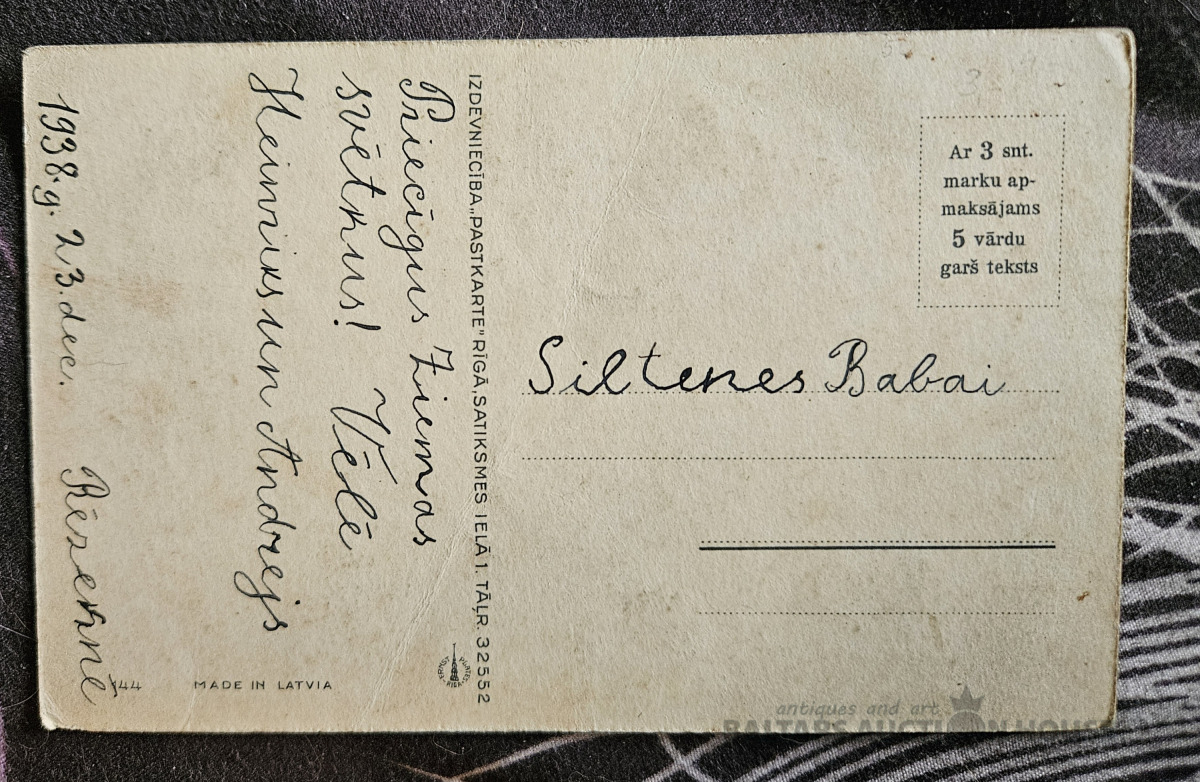 Priecīgus Ziemas
svētkus! Vēlē
Heinriks un Andrejs
1938.g. 23.dec. Rēzeknē
IZDEVNIECĪBA „PASTKARTE” RĪGĀ, SATIKSMES IELĀ 1. TĀLR. 32552
Ar 3 snt.
marku ap-
maksājams
5 vārdu
garš teksts
Siltenes Babai
144 MADE IN LATVIA
antiques and art
BALTARS AUCTION HOUSE